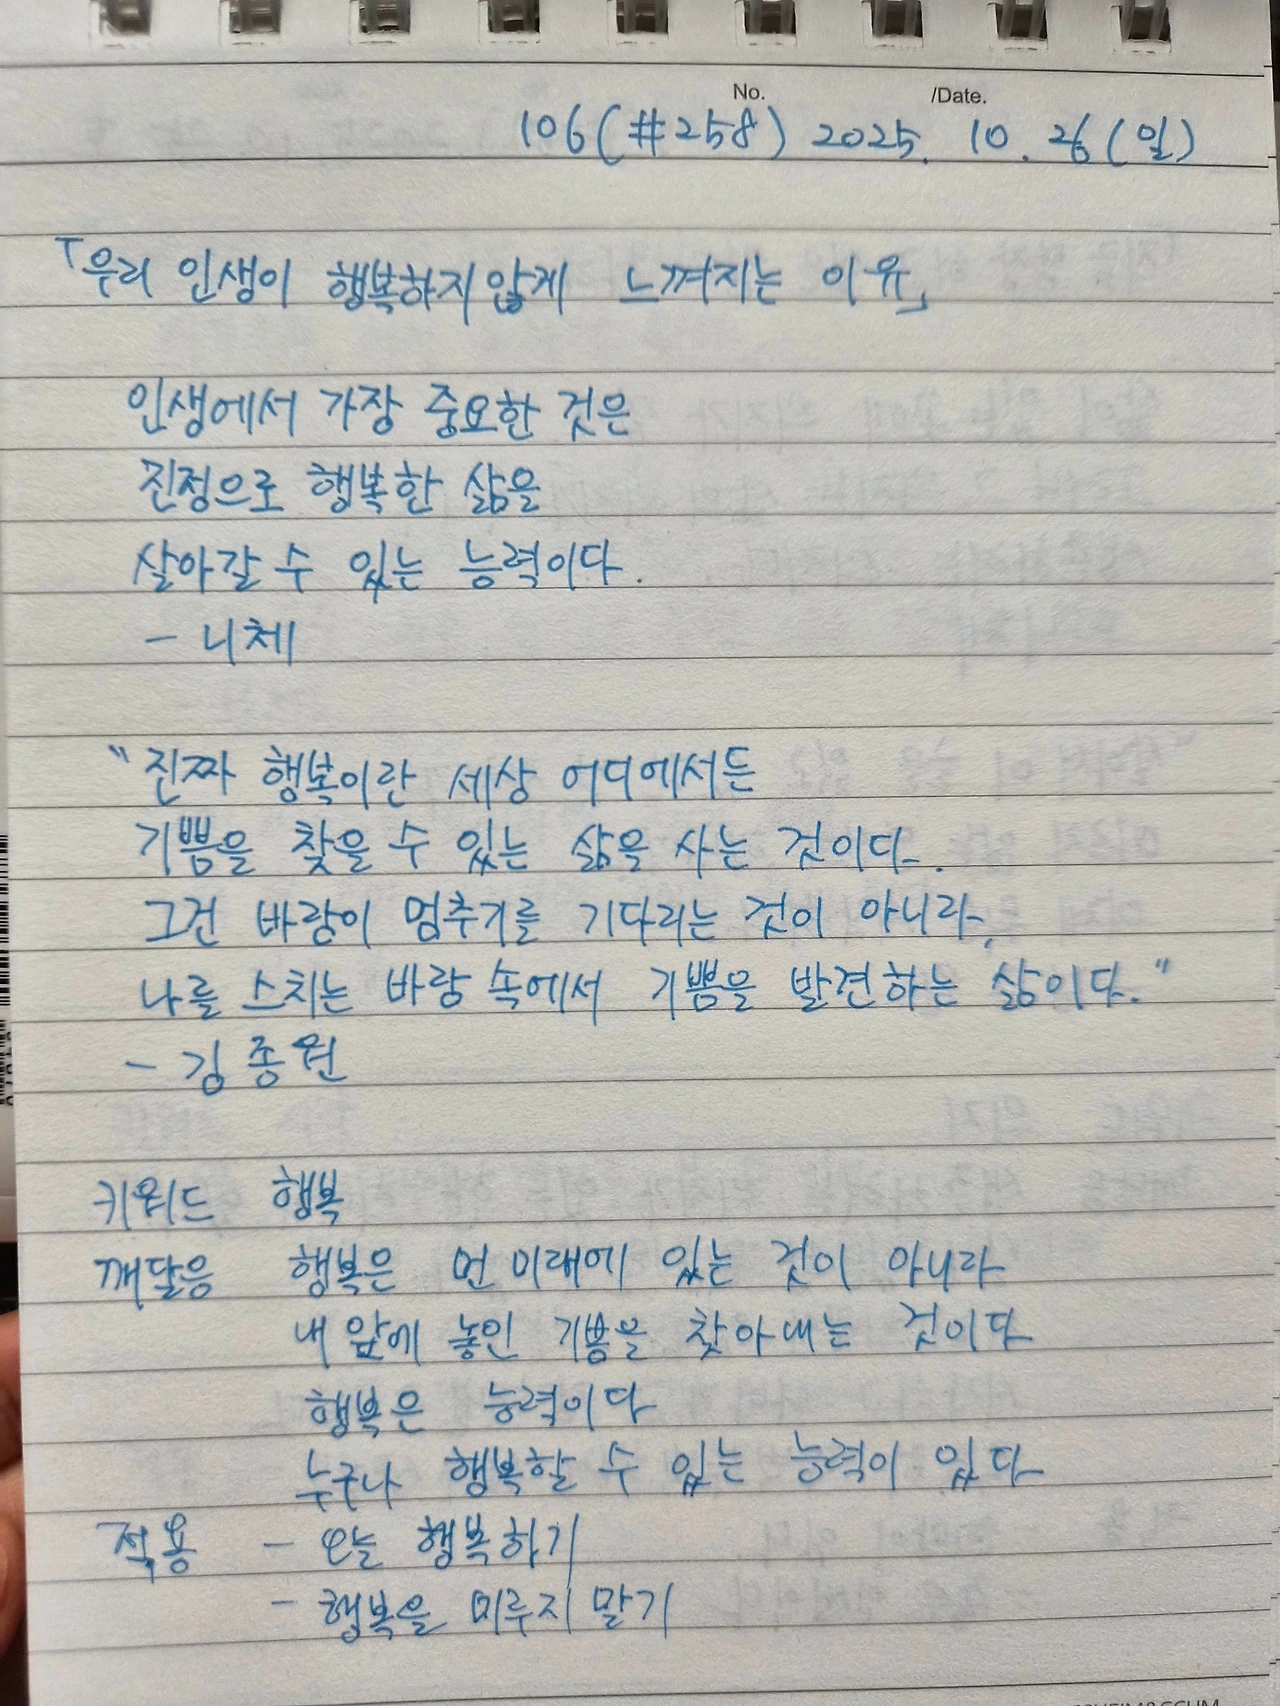 No. /Date.
106(#258) 2025. 10. 26(일)
「우리 인생이 행복하지않게 느껴지는 이유」
인생에서 가장 중요한 것은
진정으로 행복한 삶을
살아갈 수 있는 능력이다.
- 니체
"진짜 행복이란 세상 어디에서든
기쁨을 찾을 수 있는 삶을 사는 것이다.
그건 바람이 멈추기를 기다리는 것이 아니라,
나를 스치는 바람 속에서 기쁨을 발견하는 삶이다."
- 김종원
키워드 행복
깨달음 행복은 먼 미래에 있는 것이 아니라
내 앞에 놓인 기쁨을 찾아내는 것이다
행복은 능력이다
누구나 행복할 수 있는 능력이 있다
적용 - 오늘 행복하기
- 행복을 미루지 말기